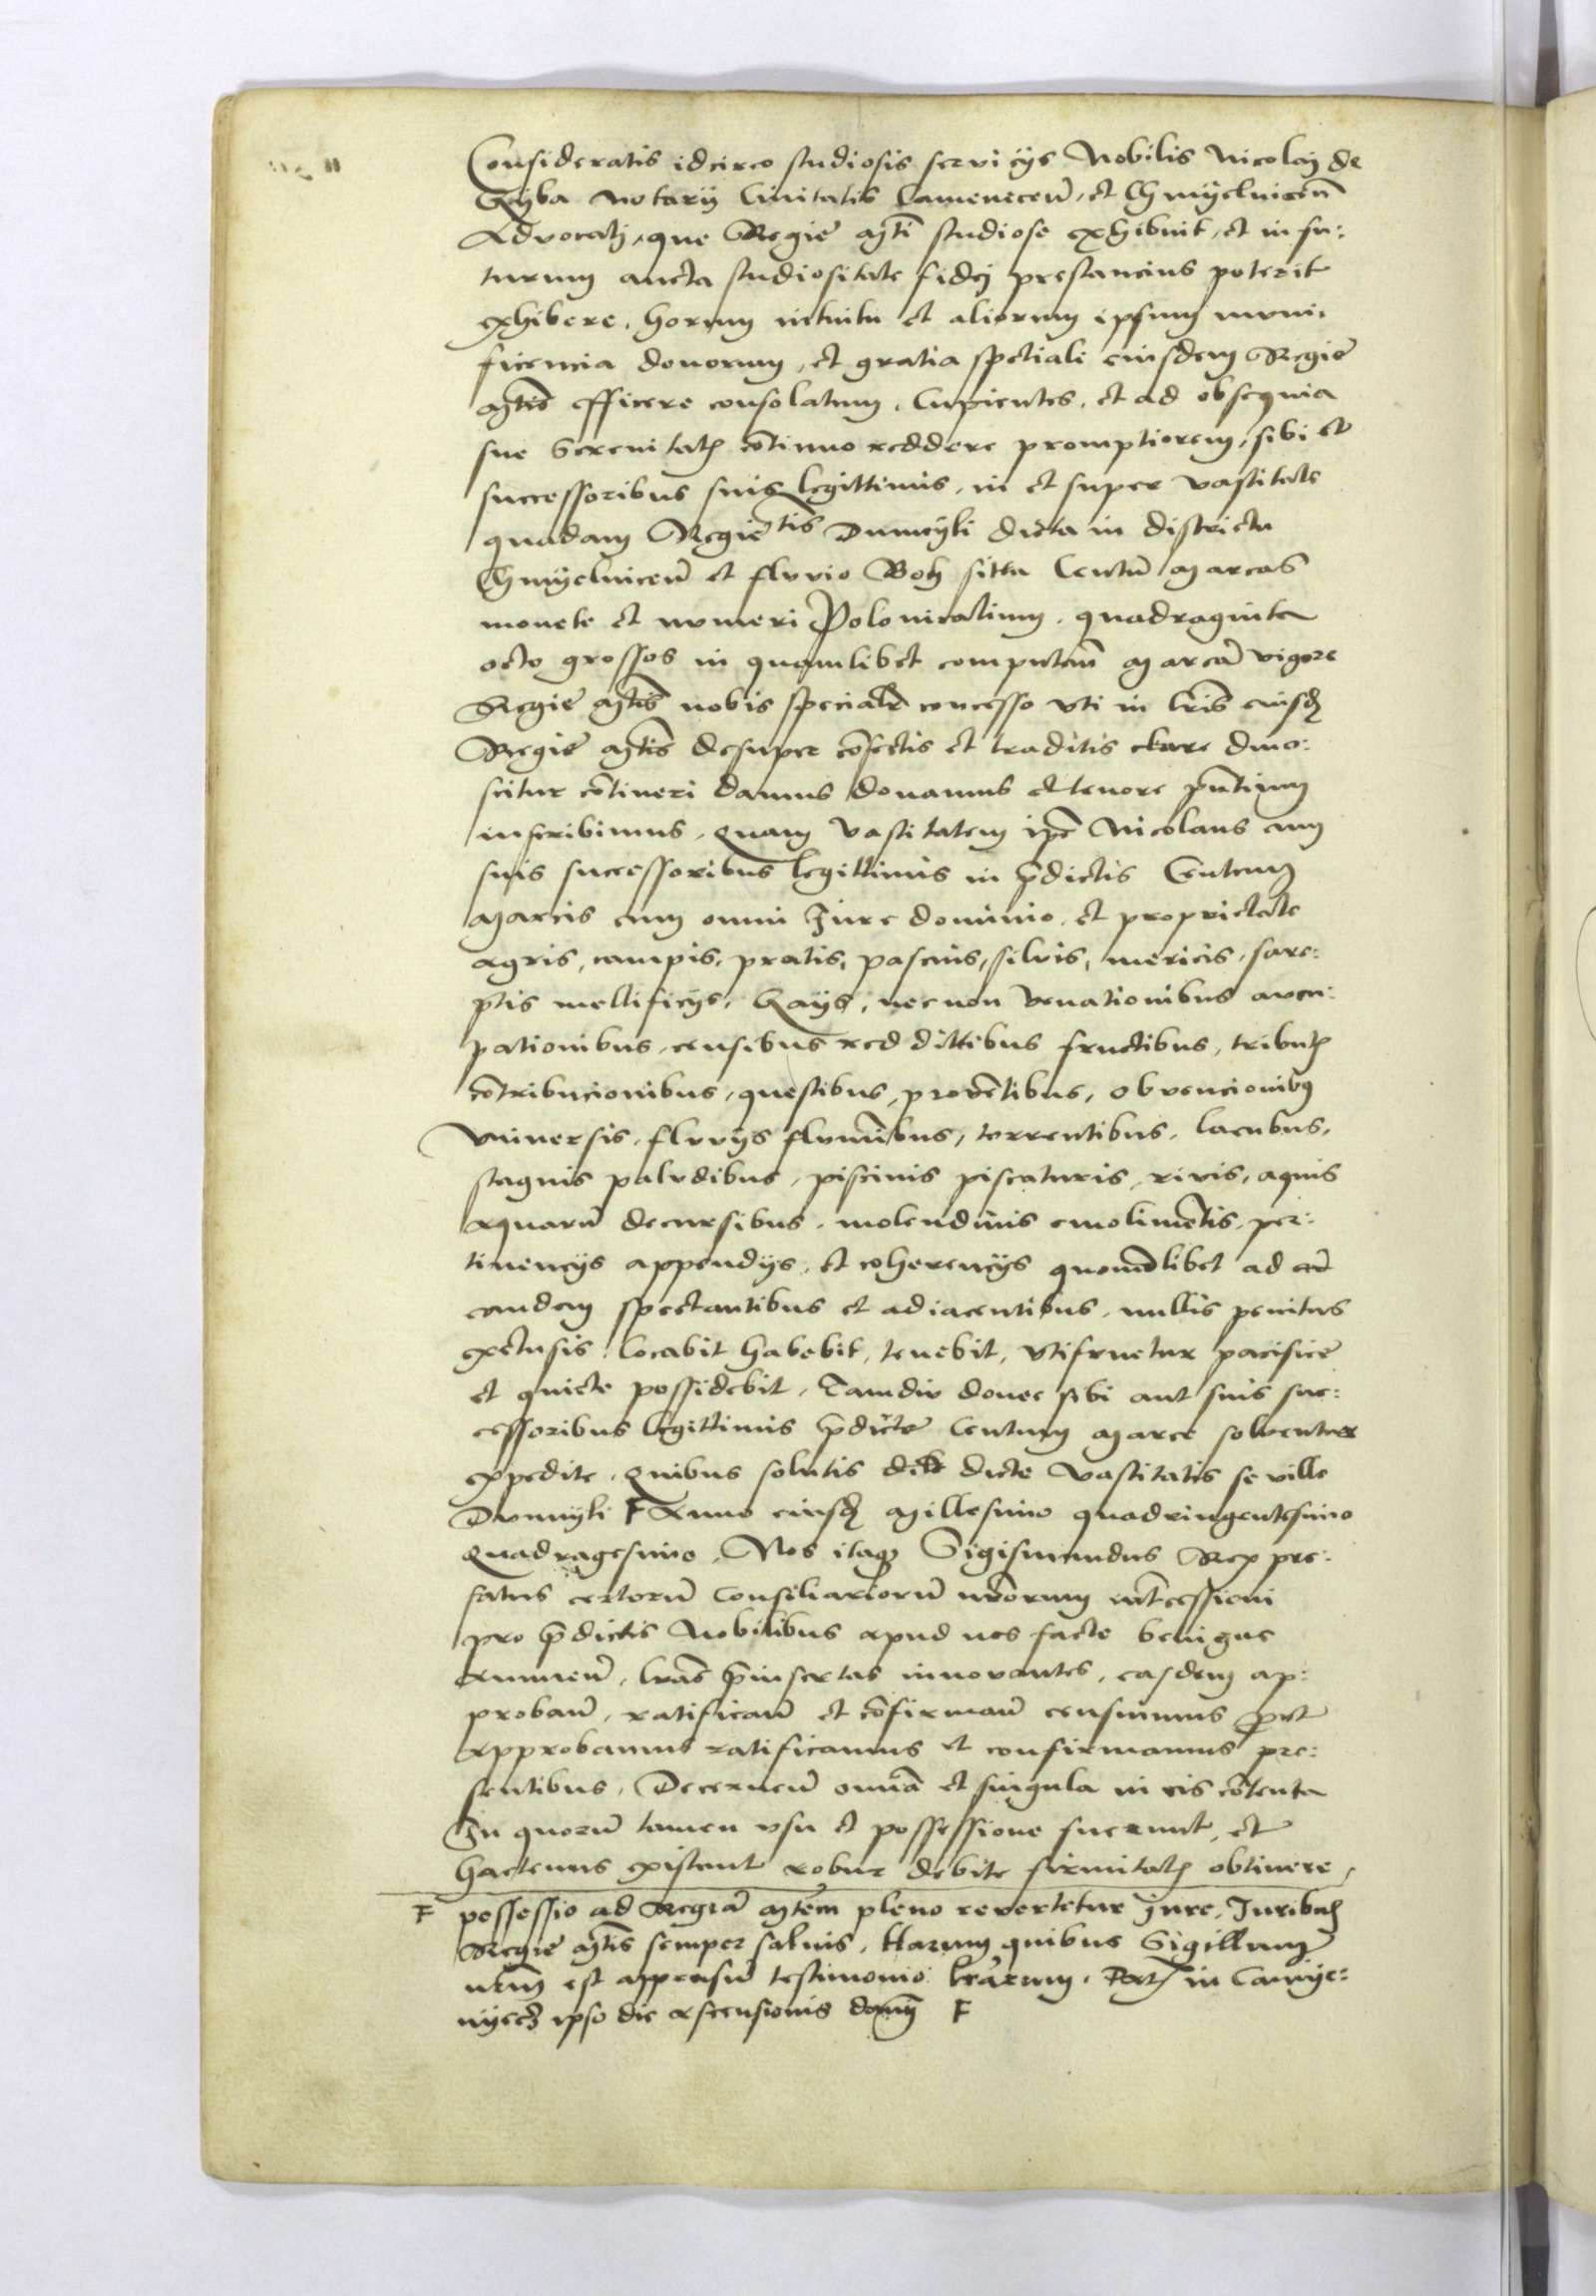 Consideratis idcirco studiosis servicijs Nobilis Nicolaj de
Gyba Notarij Civitatis Camenecen̄, et Chmyelnicen̄
Advocatj, que Regie mti studiose exhibuit, et in fu:
turum aucta studiositate fidej prestancius poterit
exhibere, horum intuitu et aliorum ipsum muni:
ficencia donorum, et gratia speciali eiusdem Regie
mtis efficere consolatum, Cupientes, et ad obsequia
sue Serenitatꝭ cōtinuo reddere promptiorem, sibi et
successoribus suis legittimis, in et super vastitate
quadam Regie tis Dumyli dicta in districtu
Chmyelnicen̄ et fluvio Boh sitta Centū Marcas
monete et numeri Polonicalium, quadraginta
octo grossos in quamlibet computan̄ Marcā vigore
Regie mtis nobis specialr̄ concesso vti in lr̄is eiusdꝭ
Regie mtis desuper cōfectis et traditis clare dino:
scitur cōtineri damus donamus et tenore pn̄tium
inscribimus, Quam Vastitatem ip̄e Nicolaus cum
suis successoribus legittimis in p̄dictis Centum
Marcis cum omni Jure dominio, et proprietate
agris, campis, pratis, pascuis, silvis, mericis,
mellificijs, Gays, nec non Venationibus aucu:
pationibus, censibus red dittibus fructibus, tributꝭ
cōtribucionibus, questibus, provētibus, obvencionibꝫ
Vniversis, fluvijs flumībus, torrentibus, lacubus,
stagnis paludibus, piscinis piscaturis, rivis, aquis
aquarū decursibus, molendinis emolimētis, per:
tinencijs appendijs, et coherencijs quomōlibet ad
eandem spectantibus et adiacentibus, nullis penitus
exclusis, locabit habebit, tenebit, vtifruetur pacifice
et quiete possidebit, Tamdiu donec sibi aut suis suc:
cessoribus legittimis p̄dicte Centum Marce solventur
expedite, Quibus solutis dicte Vastitatis se ville
Dumyli F Anno eiusdꝭ Millesimo quadringentesimo
Quadragesimo, Nos itaqꝫ Sigismundus Rex pre:
fatus certorū Consiliariorū nr̄orum intcessioni
pro p̄dictis Nobilibus apud nos facte benigne
Annuen̄, lr̄as p̄insertas innovantes, easdem ap:
proban̄, ratifican̄ et cōfirman̄ censuimus put
Approbamus ratificamus et confirmamus pre:
sentibus, Decernen̄ omn̄ia et singula in eis cōtenta
In quorū tamen vsu et possessione fuerunt, et
hactenus existunt robur debite firmitatꝭ obtinere,
F possessio ad Regiā mtem pleno revertetur Jure, Juribꝫ
Regie mtis semper salvis, Harum quibus Sigillum
nr̄m est appensū testimonio lr̄arum, Datꝭ in Camye:
nyecz ipso die Ascensionis domj F